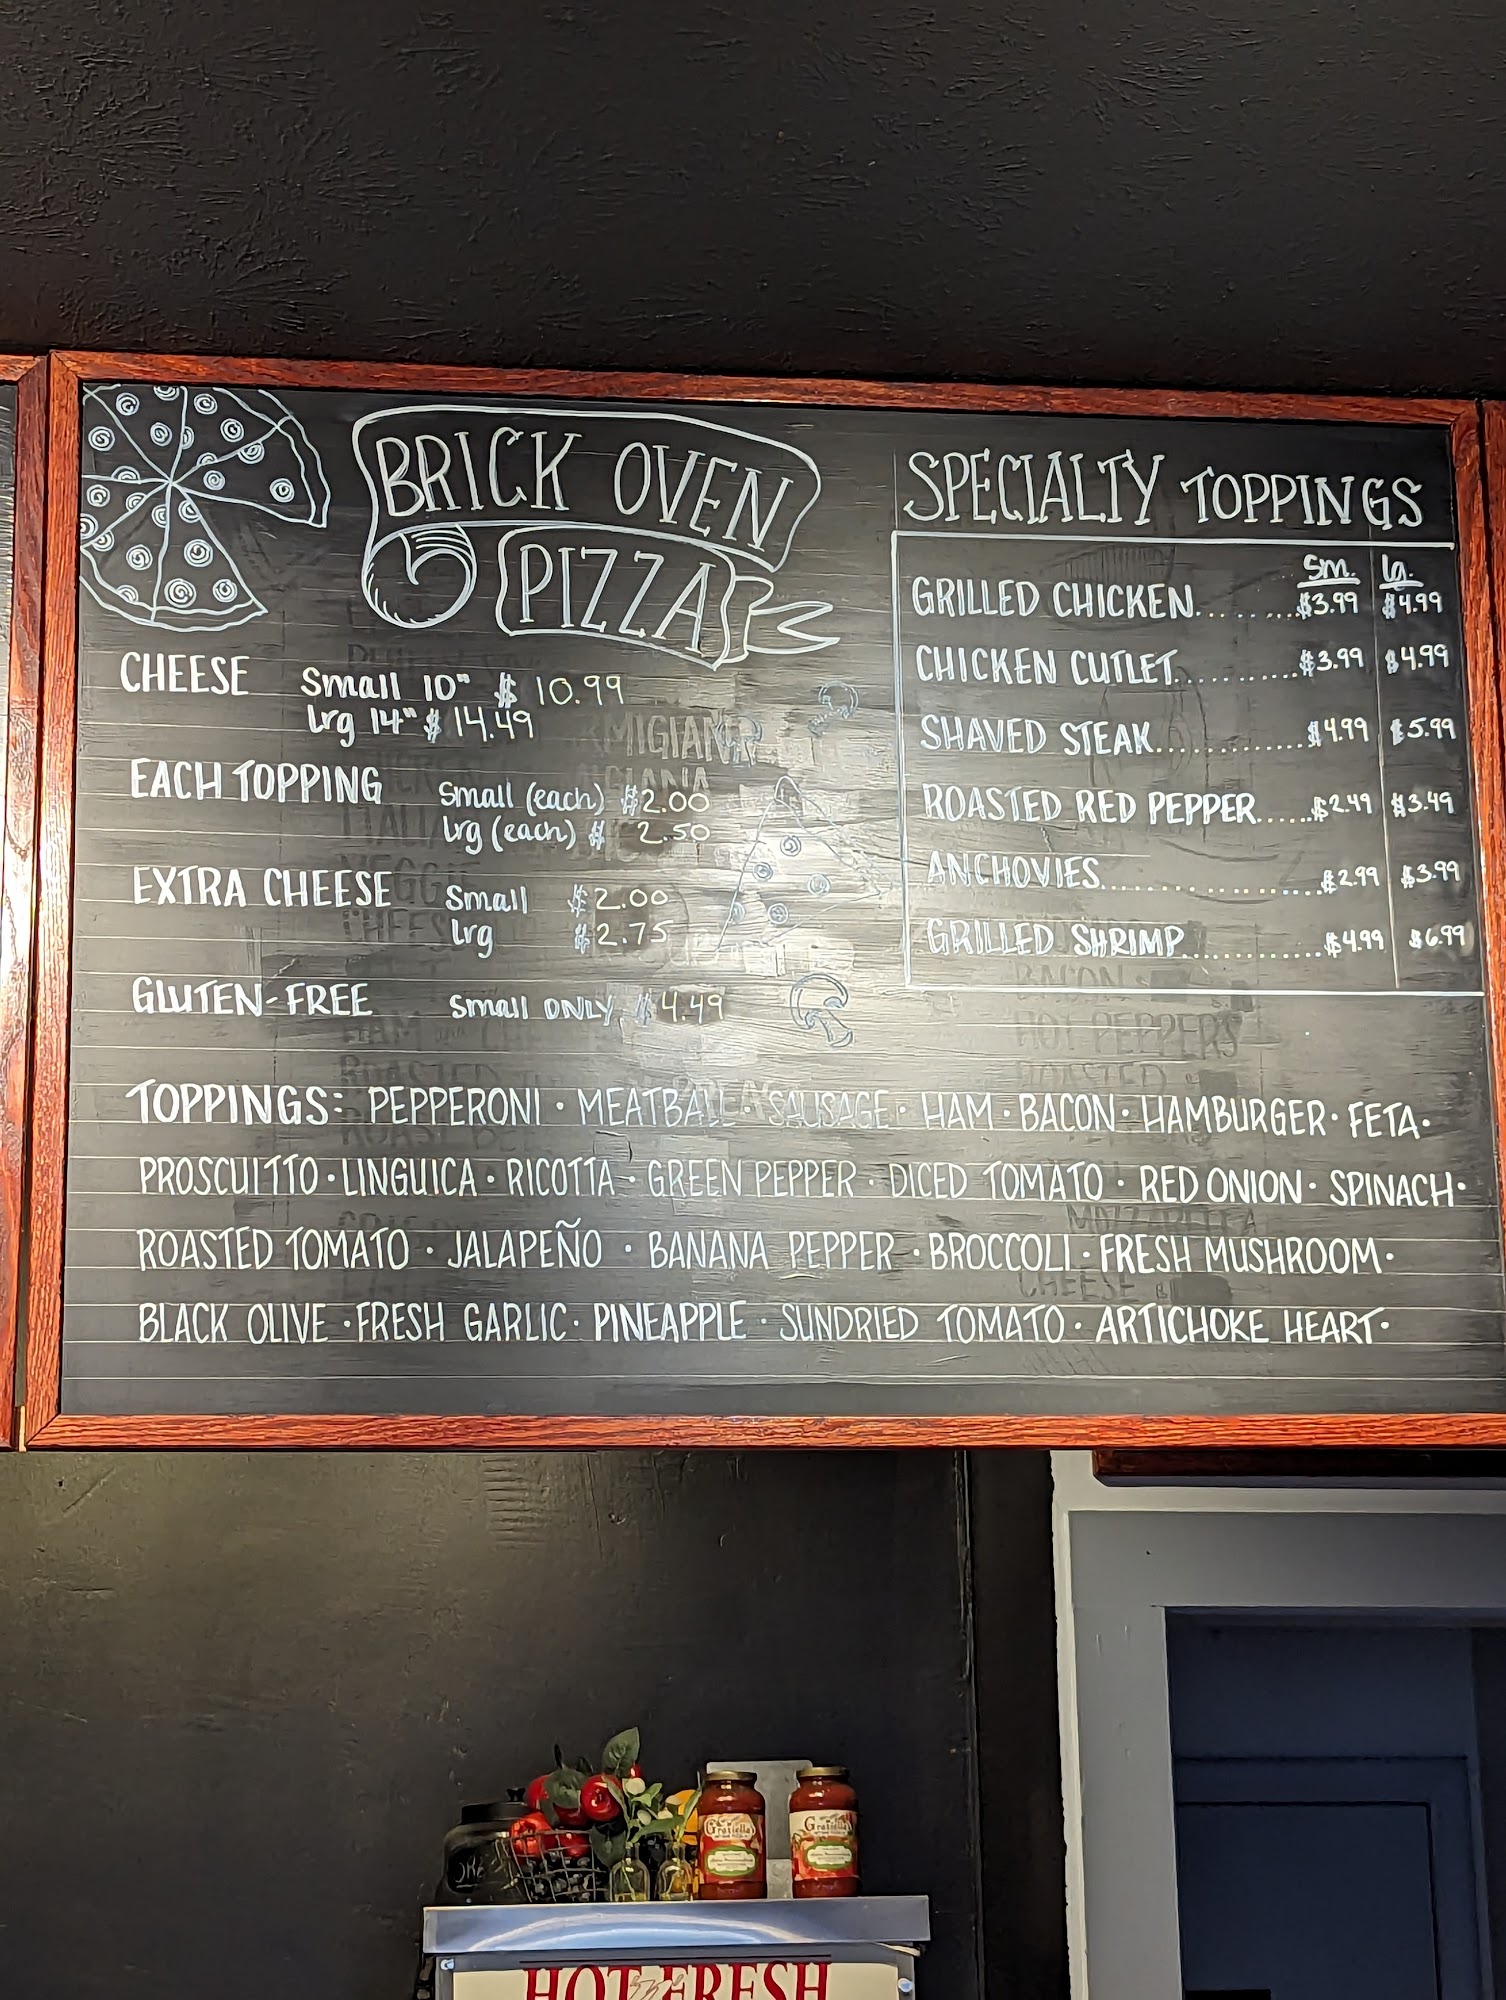 BRICK OVEN
PIZZA
CHEESE Small 10" $ 10.99
lrg 14" $ 14.49
EACH TOPPING Small (each) $2.00
lrg (each) $ 2.50
EXTRA CHEESE Small $2.00
lrg $2.75
GLUTEN-FREE Small ONLY $4.49
SPECIALTY TOPPINGS
Sm. lg.
GRILLED CHICKEN.........$3.99 $4.99
CHICKEN CUTLET..........$3.99 $4.99
SHAVED STEAK.............$4.99 $5.99
ROASTED RED PEPPER......$2.49 $3.49
ANCHOVIES..................$2.99 $3.99
GRILLED SHRIMP.............$4.99 $6.99
TOPPINGS: PEPPERONI · MEATBALL · SAUSAGE · HAM · BACON · HAMBURGER · FETA ·
PROSCUITTO · LINGUICA · RICOTTA · GREEN PEPPER · DICED TOMATO · RED ONION · SPINACH ·
ROASTED TOMATO · JALAPEÑO · BANANA PEPPER · BROCCOLI · FRESH MUSHROOM ·
BLACK OLIVE · FRESH GARLIC · PINEAPPLE · SUNDRIED TOMATO · ARTICHOKE HEART ·
HOT FRESH